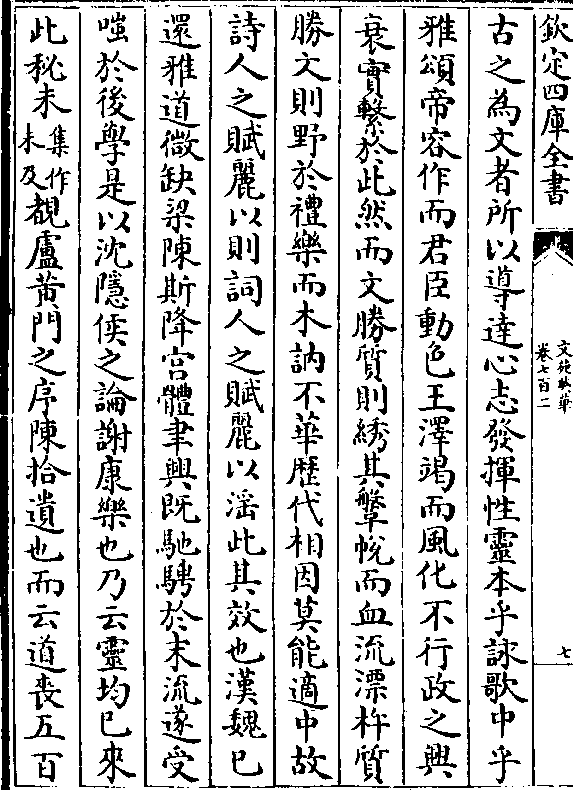 欽定四庫全書
文苑英華
卷七百二
七
古之為文者所以導達心志發揮性靈本乎詠歌中乎
雅頌帝容作而君臣動色王澤竭而風化不行政之興
衰實繫於此然而文勝質則綉其鞶帨而血流漂杵質
勝文則野於禮樂而木訥不華歴代相因莫能適中故
詩人之賦麗以則詞人之賦麗以滛此其效也漢魏已
還雅道微缺梁陳斯降宫體聿興既馳騁於末流遂受
嗤於後學是以沈隱侯之論謝康樂也乃云靈均已來
此秘未集作未及覩盧黄門之序陳拾遺也而云道喪五百